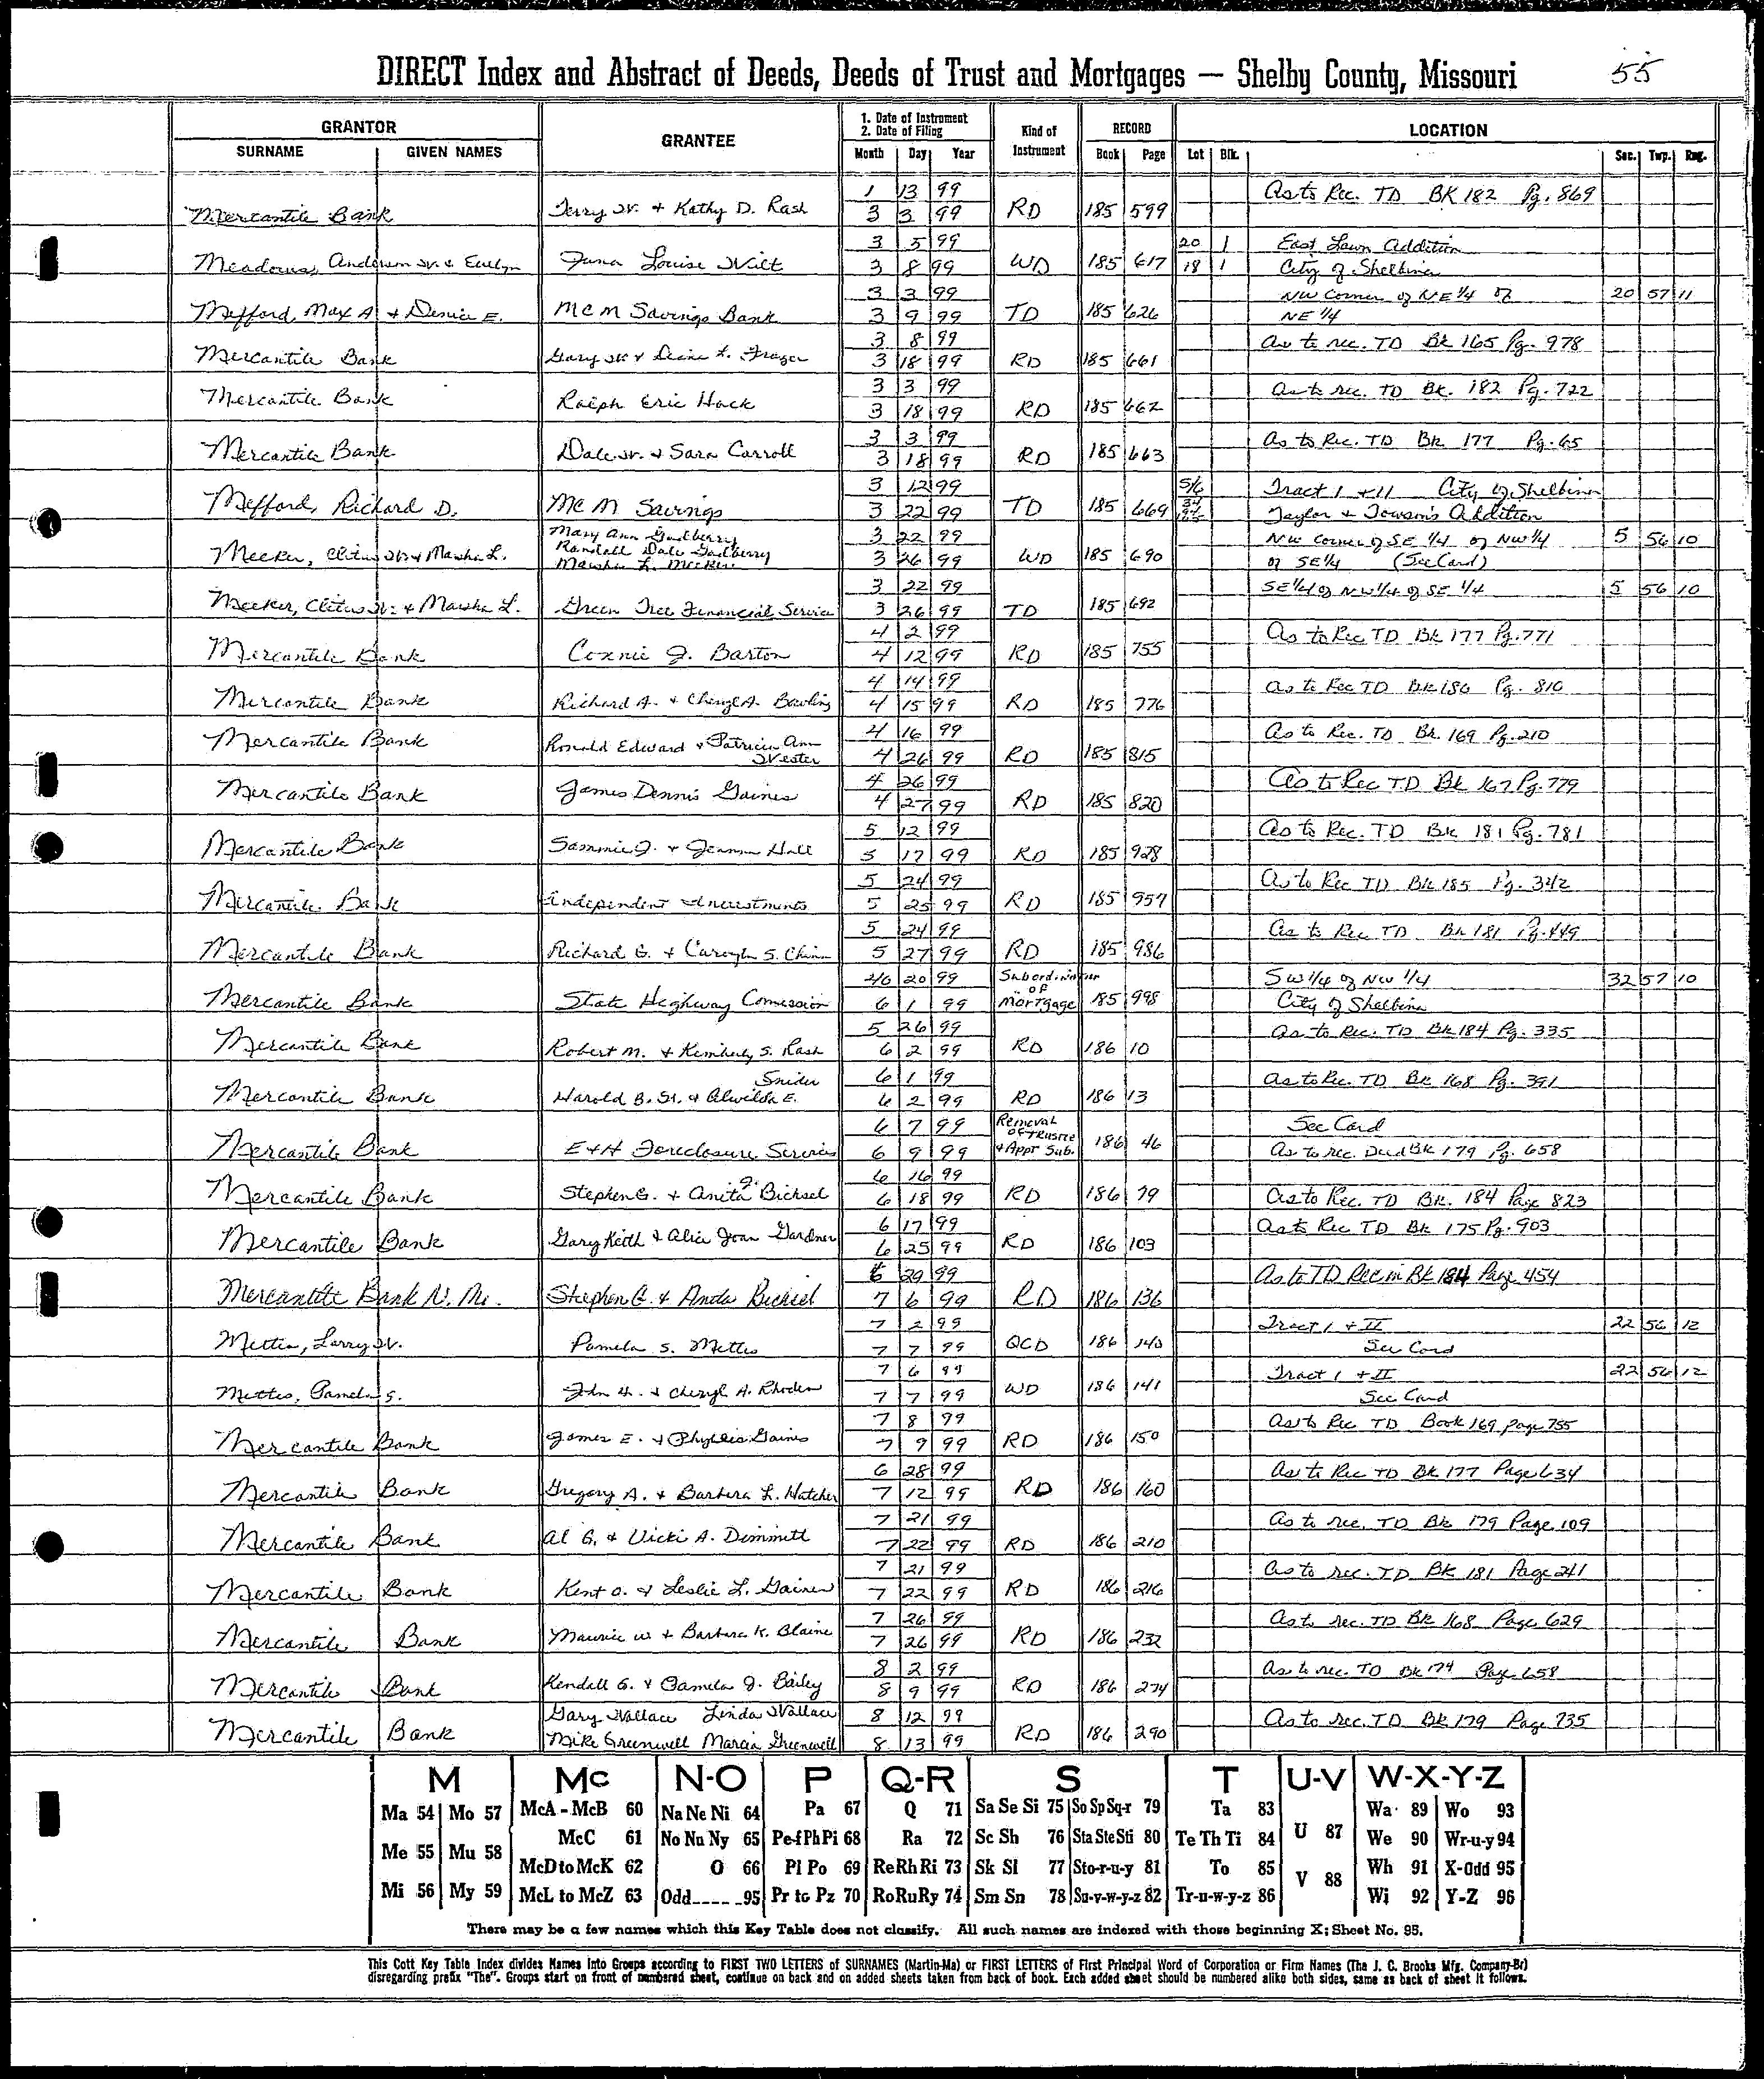 DIRECT Index and Abstract of Deeds, Deeds of Trust and Mortgages — Shelby County, Missouri 55
GRANTOR GRANTEE 1. Date of Instrument 2. Date of Filing Kind of Instrument RECORD LOCATION
SURNAME GIVEN NAMES Month Day Year Book Page Lot Blk. Sec. Twp. Rng.
1 13 99 As to Rec. TD BK 182 Pg. 869
Mercantile Bank Terry W. + Kathy D. Rash 3 3 99 RD 185 599
3 5 99 20 1 East Lawn Addition
Meadows, Anderson W. & Evelyn Louise Wilt 3 8 99 WD 185 617 18 1 City of Shelbina
3 3 99 NW Corner of NE 1/4 of 20 57 11
Mefford, Max A + Denice E. MCM Savings Bank 3 9 99 TD 185 626 NE 1/4
3 8 99 As to rec. TD Bk 165 Pg. 978
Mercantile Bank Gary W + L. Frazer 3 18 99 RD 185 661
3 3 99 As to rec. TD Bk. 182 Pg. 722
Mercantile Bank Ralph Eric Hack 3 18 99 RD 185 662
3 3 99 As to Rec. TD Bk 177 Pg. 65
Mercantile Bank Dale W. + Sara Carroll 3 18 99 RD 185 663
3 12 99 5/6 Tract 1 + 11 City of Shelbina
Mefford, Richard D. MCM Savings 3 22 99 TD 185 669 Taylor + Towson's Addition
Mary Ann Gadberry 3 22 99 NW Corner of SE 1/4 of NW 1/4 5 56 10
Meeker, Clitus W. & Marsha L. Randall Dale Gadberry Marsha L. Meeker 3 26 99 WD 185 690 of SE 1/4 (See Card)
3 22 99 SE 1/4 of NW 1/4 of SE 1/4 5 56 10
Meeker, Clitus W. + Marsha L. Green Tree Financial Service 3 26 99 TD 185 692
4 2 99 As to Rec TD Bk 177 Pg. 771
Mercantile Bank Connie J. Barton 4 12 99 RD 185 755
4 14 99 As to Rec TD Bk 180 Pg. 810
Mercantile Bank Richard A. + Cheryl A. Bowling 4 15 99 RD 185 776
4 16 99 As to Rec. TD Bk. 169 Pg. 210
Mercantile Bank Ronald Edward + Patricia Ann Wester 4 26 99 RD 185 815
4 26 99 As to Rec TD Bk 167 Pg. 779
Mercantile Bank James Dennis Gaines 4 27 99 RD 185 820
5 12 99 As to Rec. TD Bk 181 Pg. 781
Mercantile Bank Sammie J. + Hall 5 17 99 RD 185 928
5 24 99 As to Rec TD Bk 185 Pg. 342
Mercantile Bank Independent Investments 5 25 99 RD 185 957
5 24 99 As to Rec TD Bk 181 Pg. 449
Mercantile Bank Richard G. + Carolyn S. Chinn 5 27 99 RD 185 986
4/6 20 99 Subordination SW 1/4 of NW 1/4 32 57 10
Mercantile Bank State Highway Comession 6 1 99 of Mortgage 185 998 City of Shelbina
5 26 99 As to Rec. TD Bk 184 Pg. 335
Mercantile Bank Robert M. + Kimberly S. Rash 6 2 99 RD 186 10
Snider 6 1 99 As to Rec. TD Bk 168 Pg. 391
Mercantile Bank Harold B. Sr. & Alwilda E. 6 2 99 RD 186 13
6 7 99 Removal of Trustee See Card
Mercantile Bank E+H Foreclosure Services 6 9 99 + Appt Sub. 186 46 As to rec. Deed Bk 179 Pg. 658
6 16 99
Mercantile Bank Stephen G. + Anita J. Bichsel 6 18 99 RD 186 79 As to Rec. TD Bk. 184 Page 823
6 17 99 As to Rec TD Bk 175 Pg. 903
Mercantile Bank Gary Keith & Alice Joan Gardner 6 25 99 RD 186 103
6 29 99 As to TD Rec in Bk 184 Page 454
Mercantile Bank N. Mo. Stephen G. & Anita Bichsel 7 6 99 RD 186 136
7 2 99 Tract 1 + II 22 56 12
Mettes, Larry W. Pamela S. Mettes 7 7 99 QCD 186 140 See Card
7 6 99 Tract 1 + II 22 56 12
Mettes, Pamela S. John H. + Cheryl A. Rhoden 7 7 99 WD 186 141 See Card
7 8 99 As to Rec TD Book 169 page 755
Mercantile Bank James E. + Phyllis Gaines 7 9 99 RD 186 150
6 28 99 As to Rec TD Bk 177 Page 634
Mercantile Bank Gregory A. + Barbara L. Hatcher 7 12 99 RD 186 160
7 21 99 As to rec. TD Bk 179 Page 109
Mercantile Bank Al G. & Vicki A. Dimmitt 7 22 99 RD 186 210
7 21 99 As to rec. TD Bk 181 Page 241
Mercantile Bank Kent O. & Leslie L. Gaines 7 22 99 RD 186 216
7 26 99 As to rec. TD Bk 168 Page 629
Mercantile Bank Maurice W + Barbara K. Blaine 7 26 99 RD 186 232
8 2 99 As to rec. TD Bk 174 Page 658
Mercantile Bank Kendall G. & Pamela J. Bailey 8 9 99 RD 186 274
Gary Wallace Linda Wallace 8 12 99 As to rec. TD Bk 179 Page 735
Mercantile Bank Mike Greenwell Marcia Greenwell 8 13 99 RD 186 290
M Mc N-O P Q-R S T U-V W-X-Y-Z
Ma 54 Mo 57 McA - McB 60 Na Ne Ni 64 Pa 67 Q 71 Sa Se Si 75 So Sp Sq-r 79 Ta 83 U 87 Wa 89 Wo 93
Me 55 Mu 58 McC 61 No Nu Ny 65 Pe-f Ph Pi 68 Ra 72 Sc Sh 76 Sta Ste Sti 80 Te Th Ti 84 We 90 Wr-u-y 94
McD to McK 62 O 66 Pl Po 69 Re Rh Ri 73 Sk Sl 77 Sto-r-u-y 81 To 85 V 88 Wh 91 X-Odd 95
Mi 56 My 59 McL to McZ 63 Odd 95 Pr to Pz 70 Ro Ru Ry 74 Sm Sn 78 Su-v-w-y-z 82 Tr-u-w-y-z 86 Wi 92 Y-Z 96
There may be a few names which this Key Table does not classify. All such names are indexed with those beginning X; Sheet No. 95.
This Cott Key Table Index divides Names into Groups according to FIRST TWO LETTERS of SURNAMES (Martin-Ma) or FIRST LETTERS of First Principal Word of Corporation or Firm Names (The J. C. Brooks Mfg. Company-Br)
disregarding prefix "The". Groups start on front of numbered sheet, continue on back and on added sheets taken from back of book. Each added sheet should be numbered alike both sides, same as back of sheet it follows.